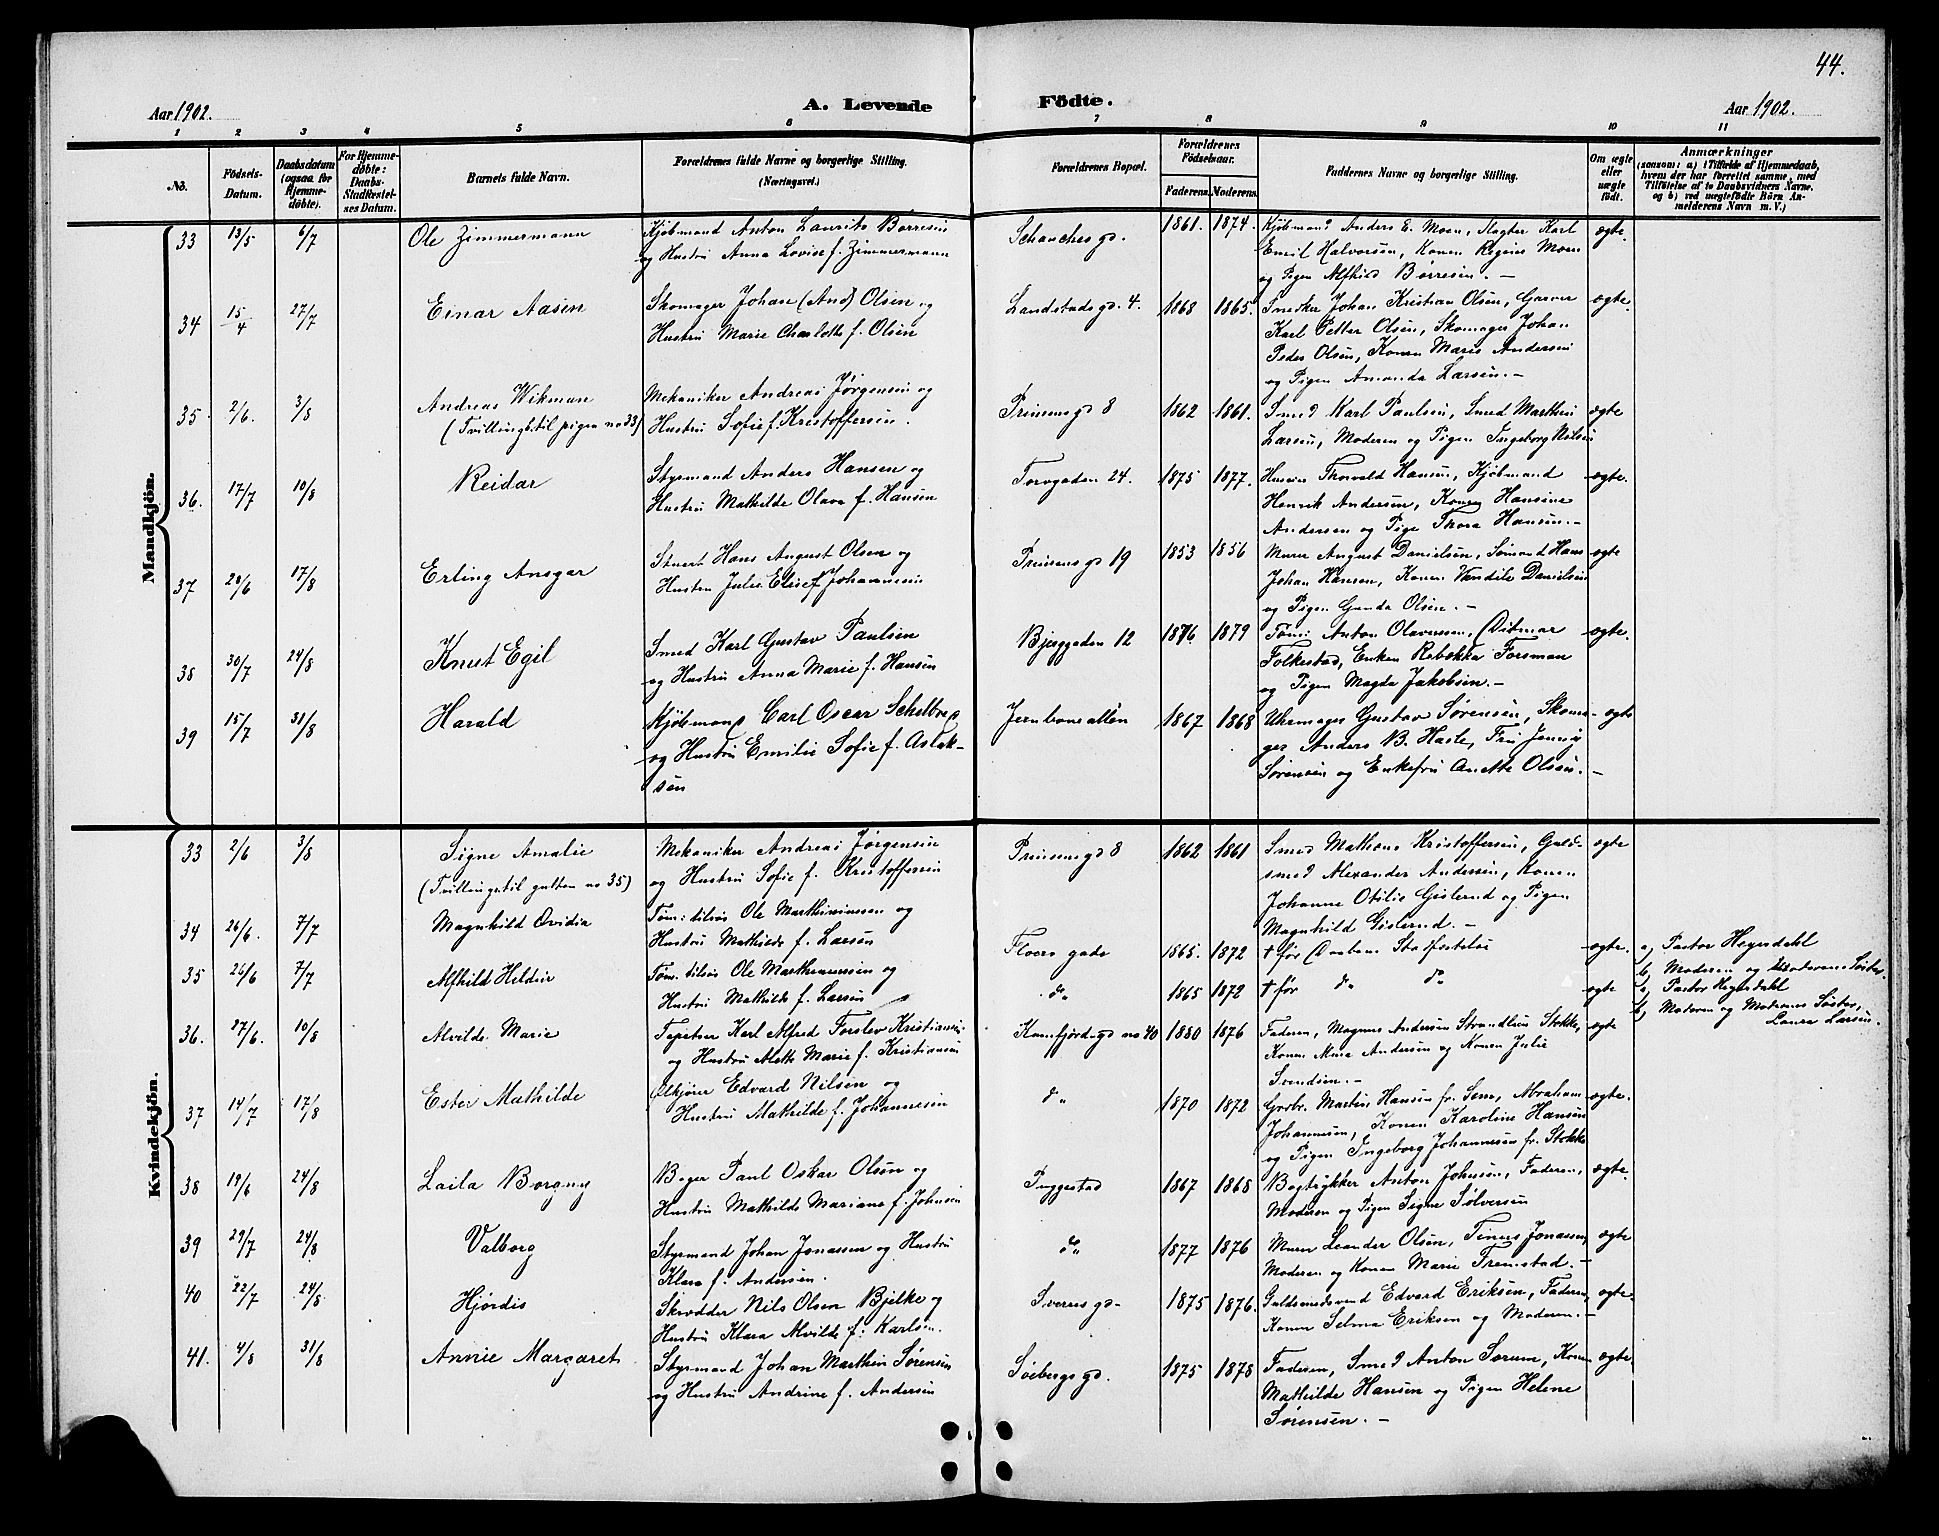 44.
Aar 1902.
A. Levende Födte.
Aar 1902.
1 2 3 4 5 6 7 8 9 10 11
No.
Födsels-Datum.
Daabsdatum (ogsaa for Hjemme-döbte).
For Hjemme-döbte: Daabs-Stadfæstel-ses Datum.
Barnets fulde Navn.
Forældrenes fulde Navne og borgerlige Stilling.
(Næringsvei.)
Forældrenes Bopæl.
Forældrenes Födselsaar.
Faderens. Moderens.
Faddernes Navne og borgerlige Stilling.
Om ægte eller uægte födt.
Anmærkninger
(saasom: a) i Tilfælde af Hjemmedaab,
hvem der har forrettet samme, med
Tilföielse af to Daabsvidners Navne.
og b) ved uægtefödte Börn An-
melderens Navn m. V.)
Mandkjön.
33 13/5 6/7 Ole Zimmermann
Kjøbmand Anton Laurits Børresen
og Hustru Anna Lovise f. Zimmermann
Schanchesgd. 1861. 1874.
Kjøbmand Anders E. Moen, Slagter Karl
Emil Halvorsen, Konen Regine Moen
og Pigen Alfhild Børresen. —
ægte.
34 15/4 27/7 Einar Aasen
Skomager Johan (And) Olsen og
Hustru Marie Charlotte f. Olsen
Landstadsgd. 4. 1868 1865.
Snedker Johan Kristian Olsen, Garver
Karl Petter Olsen, Skomager Johan
Peder Olsen, Konen Marie Andersen
og Pigen Amanda Larsen. —
ægte.
35. 2/6. 3/8 Andreas Wikman
(Tvillingb. til pigen no 33)
Mekaniker Andreas Jørgensen og
Hustru Sofie f. Kristoffersen.
Prinsensgd 8 1862 1861.
Smed Karl Paulsen, Smed Marthin
Larsen, Moderen og Pigen Ingeborg Nilsen
ægte
36. 17/7 10/8 Reidar
Styrmand Anders Hansen og
Hustru Mathilde Olava f. Hansen
Torvgaden 24. 1875 1877.
Thorvald Hansen, Kjøbmand
Henrik Andersen, Konen Hansine
Andersen og Pige Thora Hansen. —
ægte.
37 28/6 17/8 Erling Ansgar
Stuert Hans August Olsen og
Hustru Julie Elise f. Johannesen
Prinsensgd 19 1853 1856
Murer August Danielsen, Sømand Hans
Johan Hansen, Konen Vendile Danielsen
og Pigen Gunda Olsen. —
ægte
38 30/7 24/8 Knut Egil
Smed Karl Gustav Paulsen
og Hustru Anna Marie f. Hansen
Bjerggaden 12 1876 1879
Tømr. Anton Olavessen, Ditmar
Folkestad, Enken Rebekka Forsman
og Pigen Magda Jakobsen. —
ægte.
39 15/7 31/8 Harald
Kjøbmand Carl Oscar
og Hustru Emilie Sofie f. Aslak-
sen
Jernbanealleen 1867 1868
Uhrmager Gustav Sørensen, Skoma-
ger Anders B. Hasle, Fru Jensy
Sørensen og Enkefru Anette Olsen. —
ægte
Kvindekjön.
33 2/6 3/8 Signe Amalie
(Tvillings. til gutten no 35)
Mekaniker Andreas Jørgensen
og Hustru Sofie f. Kristoffersen
Prinsensgd 8 1862 1861
Smed Mathias Kristoffersen, Guld-
smed Alexander Andersen, Konen
Johanne Otilie Gislerud og Pigen
Magnhild Gislerud. —
ægte
34 26/6. 7/7 Magnhild Ovidia
Tøm: tilsvs Ole Marthiniussen og
Hustru Mathilde f. Larsen
Floers gade 1865. 1872
† før Daabens Stadfestelse
ægte. a) Pastor Heyerdahl
b) Moderen og Moderens Søster
35 26/6 7/7 Alfhild Heldine
Tøm. tilsvs Ole Marthiniussen og
Hustru Mathilde f. Larsen
do 1865 1872 † før do do
ægte a) Pastor Heyerdahl
b) Moderen og Moderens Søster,
Laura Larsen.
36. 27/6. 10/8 Alvilde Marie
Tapetser Karl Alfred Forslev Kristiansen
og Hustru Alette Marie f. Kristiansen
Kamfjordsgd no 40 1880 1876
Faderen, Magnus Andersen Strandlien Stokke,
Konen Mina Andersen og Konen Julie
Svendsen. —
ægte
37 14/7 17/8 Ester Mathilde
Ølkjører Edvard Nilsen og
Hustru Mathilde f. Johannesen
do 1870 1872
Gbr. Martin Hansen fr. Sem, Abraham
Johannesen, Konen Karoline Hansen
og Pigen Ingeborg Johannesen fr. Stokke
ægte.
38 19/6 24/8 Laila Borgny
Bager Paul Oskar Olsen og
Hustru Mathilde Mariane f. Johnsen
Preggestad 1867 1868
Bogtrykker Anton Johnsen, Faderen,
Moderen og Pigen Signe Sølversen
ægte.
39 29/7 24/8 Valborg
Styrmand Johan Jonassen og Hustru
Klara f. Andersen.
do 1877 1876
Murer Leander Olsen, Tinus Jonassen,
Moderen og Konen Marie Fremstad. —
ægte
40 22/7 24/8 Hjørdis
Skrædder Nils Olsen Bjelke og
Hustru Klara Alvilde f. Karlsen.
Sverresgd— 1875 1876.
Guldsmedsvend Edvard Eriksen, Faderen,
Konen Selma Eriksen og Moderen. —
ægte.
41. 4/8 31/8 Annie Margaret
Styrmand Johan Marthin Sørensen
og Hustru Andrine f. Andersen
Søebergsgd. 1875 1878
Faderen, Smed Anton Sorum, Konen
Mathilde Hansen og Pigen Helene
Sørensen. —
ægte.